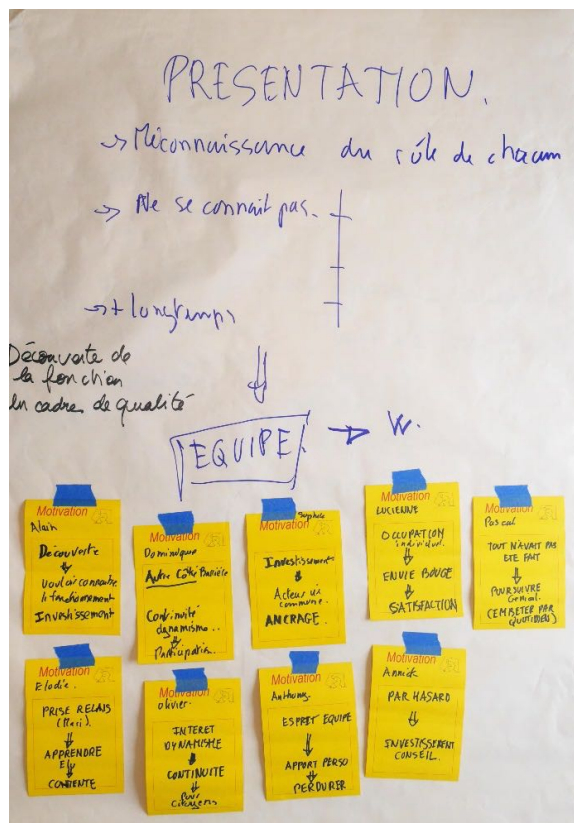 PRESENTATION.
→ Méconnaissance du rôle de chacun
→ Ne se connait pas.
→ + longtemps
Découverte de
la fonction
un cadre de qualité
EQUIPE → W.
Motivation
Alain
Découverte
Vouloir connaitre
le fonctionnement
Investissement
Motivation
Dominique
Autre Côté Barrière
Continuité
dynamisme..
Participatif..
Motivation
Investissement
Acteur
commune.
ANCRAGE.
Motivation
LUCIENNE
OCCUPATION
individuel.
ENVIE BOUGE
SATISFACTION
Motivation
Pascal
TOUT N'AVAIT PAS
ETE FAIT
POURSUIVRE
Génial.
(EMBETER PAR
QUOTIDIEN)
Motivation
Elodie.
PRISE RELAIS
(Mari).
APPRENDRE
ELU
CONTENTE
Motivation
Olivier
INTERET
DYNAMISME
CONTINUITE
Pour
Citoyens
Motivation
Anthony
ESPRIT EQUIPE
APPORT PERSO
PERDURER
Motivation
Annick
PAR HASARD
INVESTISSEMENT
CONSEIL.